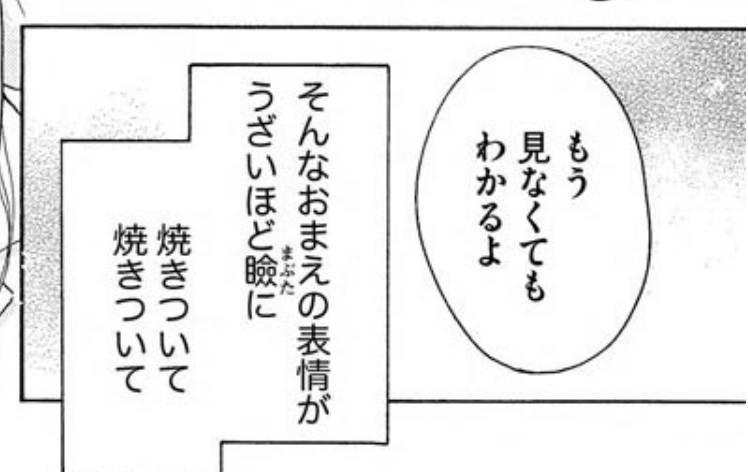 もう
見なくても
わかるよ
そんなおまえの表情が
うざいほど瞼に
まぶた
焼きついて
焼きついて